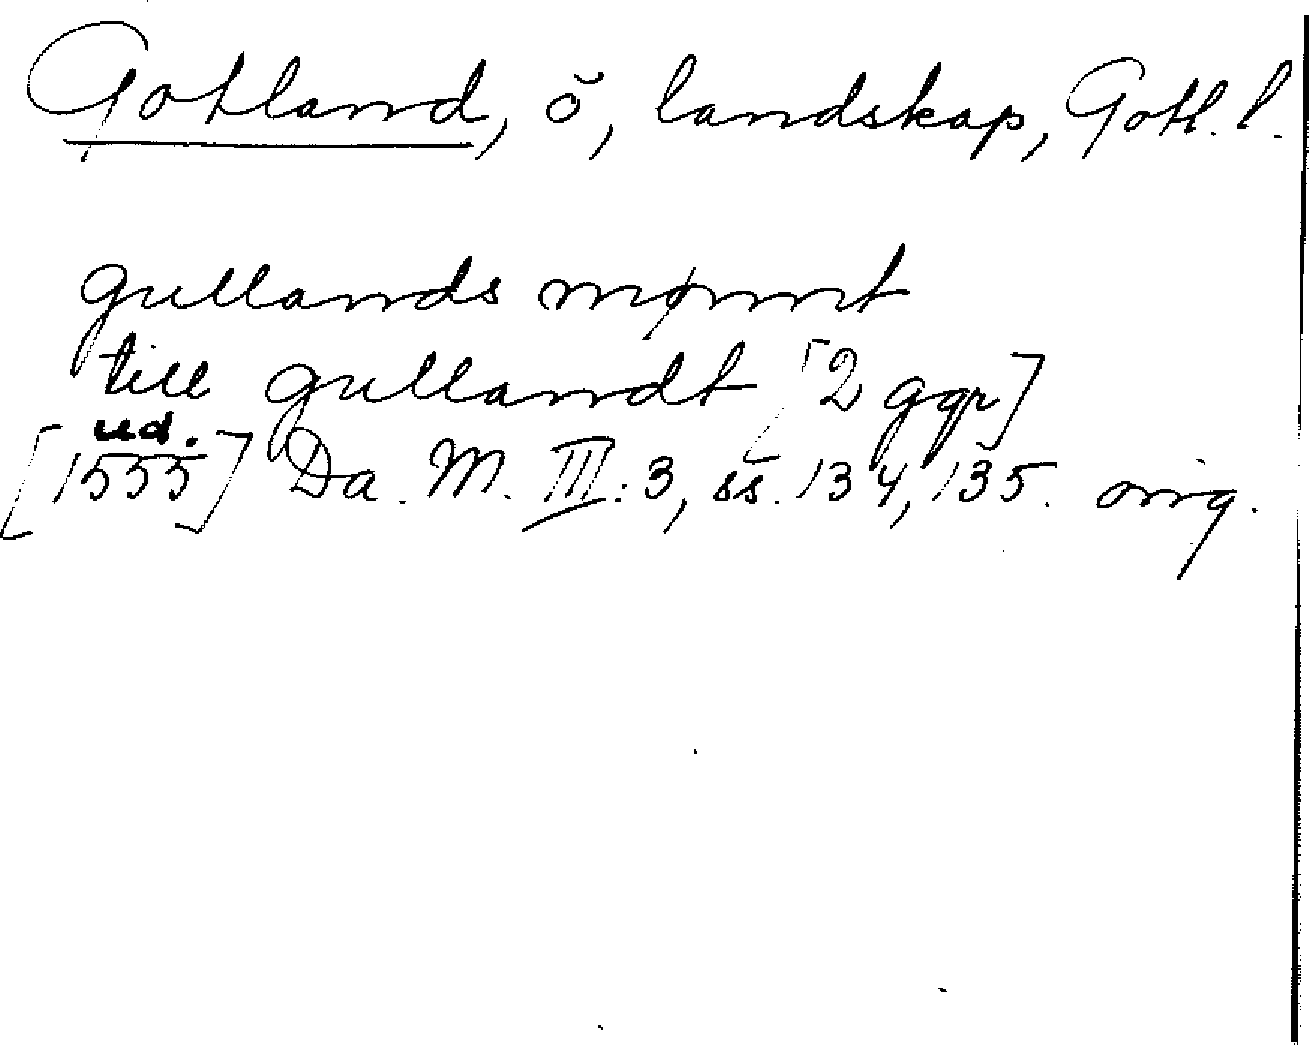 Gotland, ö, landskap, Gotl. l.
gullands mønnt
till gullandt [2 ggr]
ud.
[1555] Da. M. III: 3, ss. 134, 135. orig.